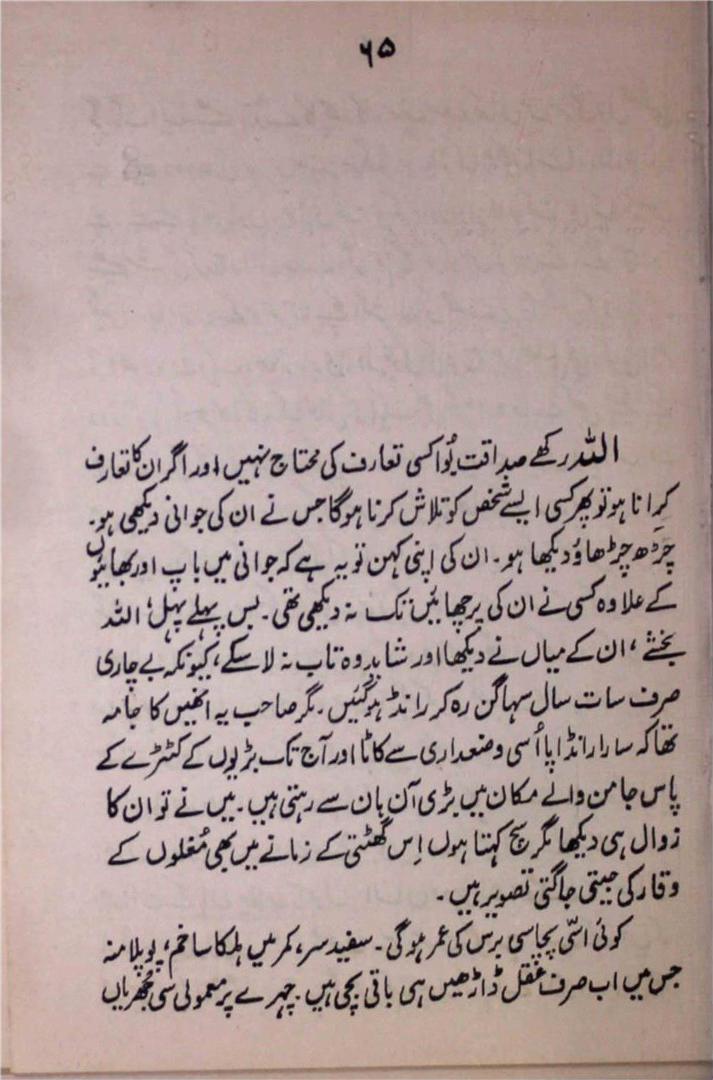 ۶۵
اللہ رکھے صداقت بُوا کسی تعارف کی محتاج نہیں اور اگر ان کا تعارف
کرانا ہو تو پھر کسی ایسے شخص کو تلاش کرنا ہوگا جس نے ان کی جوانی دیکھی ہو۔
چڑھ چڑھاؤ دیکھا ہو۔ ان کی اپنی کہن تو یہ ہے کہ جوانی میں باپ اور بھائیوں
کے علاوہ کسی نے ان کی پرچھائیں تک نہ دیکھی تھی۔ بس پہلے پہل، اللہ
بخشے، ان کے میاں نے دیکھا اور شاید وہ تاب نہ لا سکے، کیونکہ بے چاری
صرف سات سال سہاگن رہ کر رانڈ ہوگئیں۔ مگر صاحب یہ انھیں کا جامہ
تھا کہ سارا رانڈاپا اُسی وضعداری سے کاٹا اور آج تک بڑیوں کے کٹڑے کے
پاس جامن والے مکان میں بڑی آن بان سے رہتی ہیں۔ میں نے تو ان کا
زوال ہی دیکھا مگر سچ کہتا ہوں اِس گھٹتی کے زمانے میں بھی مُغلوں کے
وقار کی جیتی جاگتی تصویر ہیں۔
کوئی اسّی پچاسی برس کی عمر ہوگی۔ سفید سر، کمر میں ہلکا سا خم، پوپلا منہ
جس میں اب صرف عقل ڈاڑھیں ہی باقی بچی ہیں۔ چہرے پر معمولی سی جُھریاں